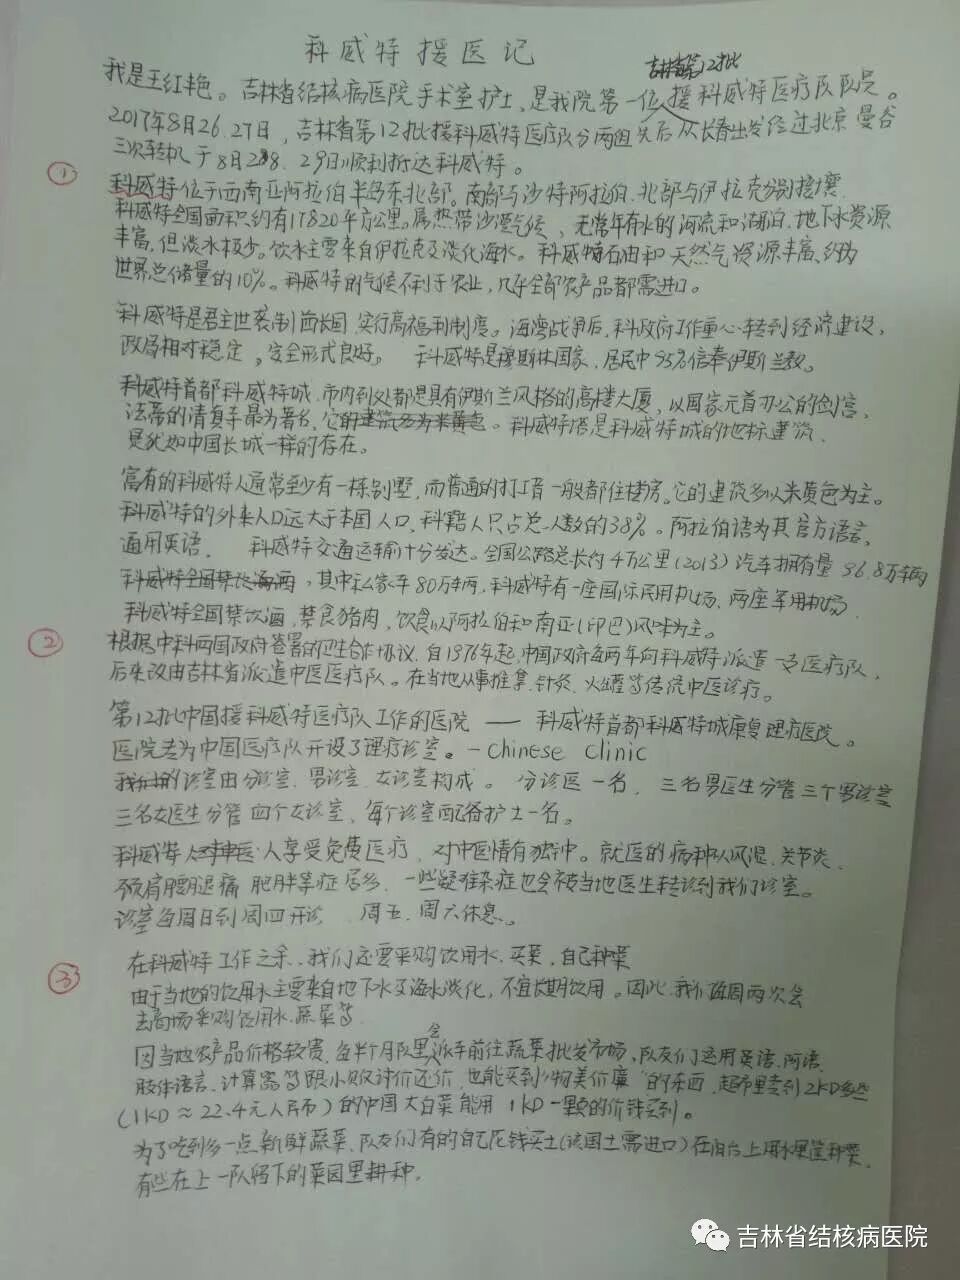 科威特援医记
吉林省第12批
我是王红艳。吉林省结核病医院手术室护士,是我院第一位援科威特医疗队队员。
2017年8月26.27日,吉林省第12批援科威特医疗队分两组先后从长春出发经过北京 曼谷
三次转机于8月28.29日顺利抵达科威特。
①
科威特位于西南亚阿拉伯半岛东北部。南部与沙特阿拉伯、北部与伊拉克分别接壤
科威特全国面积约有17820平方公里。属热带沙漠气候,无常年有水的河流和湖泊.地下水资源
丰富,但淡水极少。饮水主要来自伊拉克及淡化海水。科威特石油和天然气资源丰富,约为
世界总储量的10%。科威特的气候不利于农业,几乎全部农产品都需进口。
科威特是君主世袭制酋长国,实行高福利制度。海湾战争后,科政府工作重心转到经济建设,
政局相对稳定。安全形式良好。 科威特是穆斯林国家,居民中95%信奉伊斯兰教。
科威特首都科威特城.市内到处都是具有伊斯兰风格的高楼大厦,以国家元首办公的剑宫、
法蒂的清真寺最为著名,它的建筑多为米黄色。科威特塔是科威特城的地标建筑、
是犹如中国长城一样的存在。
富有的科威特人通常至少有一栋别墅,而普通的打工者一般都住楼房。它的建筑多以米黄色为主。
科威特的外来人口远大于本国人口,科籍人只占总人数的38%。阿拉伯语为其官方语言,
通用英语. 科威特交通运输十分发达。全国公路总长约4万公里(2013)汽车拥有量96.8万车辆
科威特全国禁饮酒,其中私家车80万辆,科威特有一座国际民用机场、两座军用机场
科威特全国禁饮酒,禁食猪肉,饮食以阿拉伯和南亚(印巴)风味为主。
②
根据中科两国政府签署的卫生合作协议.自1976年起,中国政府每两年向科威特派遣一支医疗队,
后来改由吉林省派遣中医医疗队。在当地从事推拿.针灸、火罐等传统中医诊疗。
第12批中国援科威特医疗队工作的医院——科威特首都科威特城康复理疗医院。
医院专为中国医疗队开设了理疗诊室。—Chinese Clinic
我们的诊室由分诊室.男诊室.女诊室构成。分诊医一名,三名男医生分管三个男诊室
三名女医生分管四个女诊室、每个诊室配备护士一名。
科威特人对中医人享受免费医疗,对中医情有独钟。就医的病种以风湿.关节炎、
颈肩腰腿痛 肥胖等症居多.一些疑难杂症也会被当地医生转诊到我们诊室。
诊室每周日到周四开诊 周五.周六休息。
③
在科威特工作之余、我们还要采购饮用水.买菜,自己种菜
由于当地的饮用水主要来自地下水及海水淡化,不宜长期饮用。因此.我们每周两次会
去商场采购饮用水.蔬菜等
会
因当地农产品价格较贵.每半个月队里派车前往蔬菜批发市场,队友们运用英语.阿语.
肢体语言、计算器等跟小贩讨价还价,也能买到“物美价廉”的东西.超市里卖到2KD多些
(1KD≈22.4元人民币)的中国大白菜能用1KD一颗的价钱买到。
为了吃到多一点新鲜蔬菜.队友们有的自己花钱买土(该国土需进口)在阳台上用水果筐种菜.
有些在上一队留下的菜园里耕种.
吉林省结核病医院